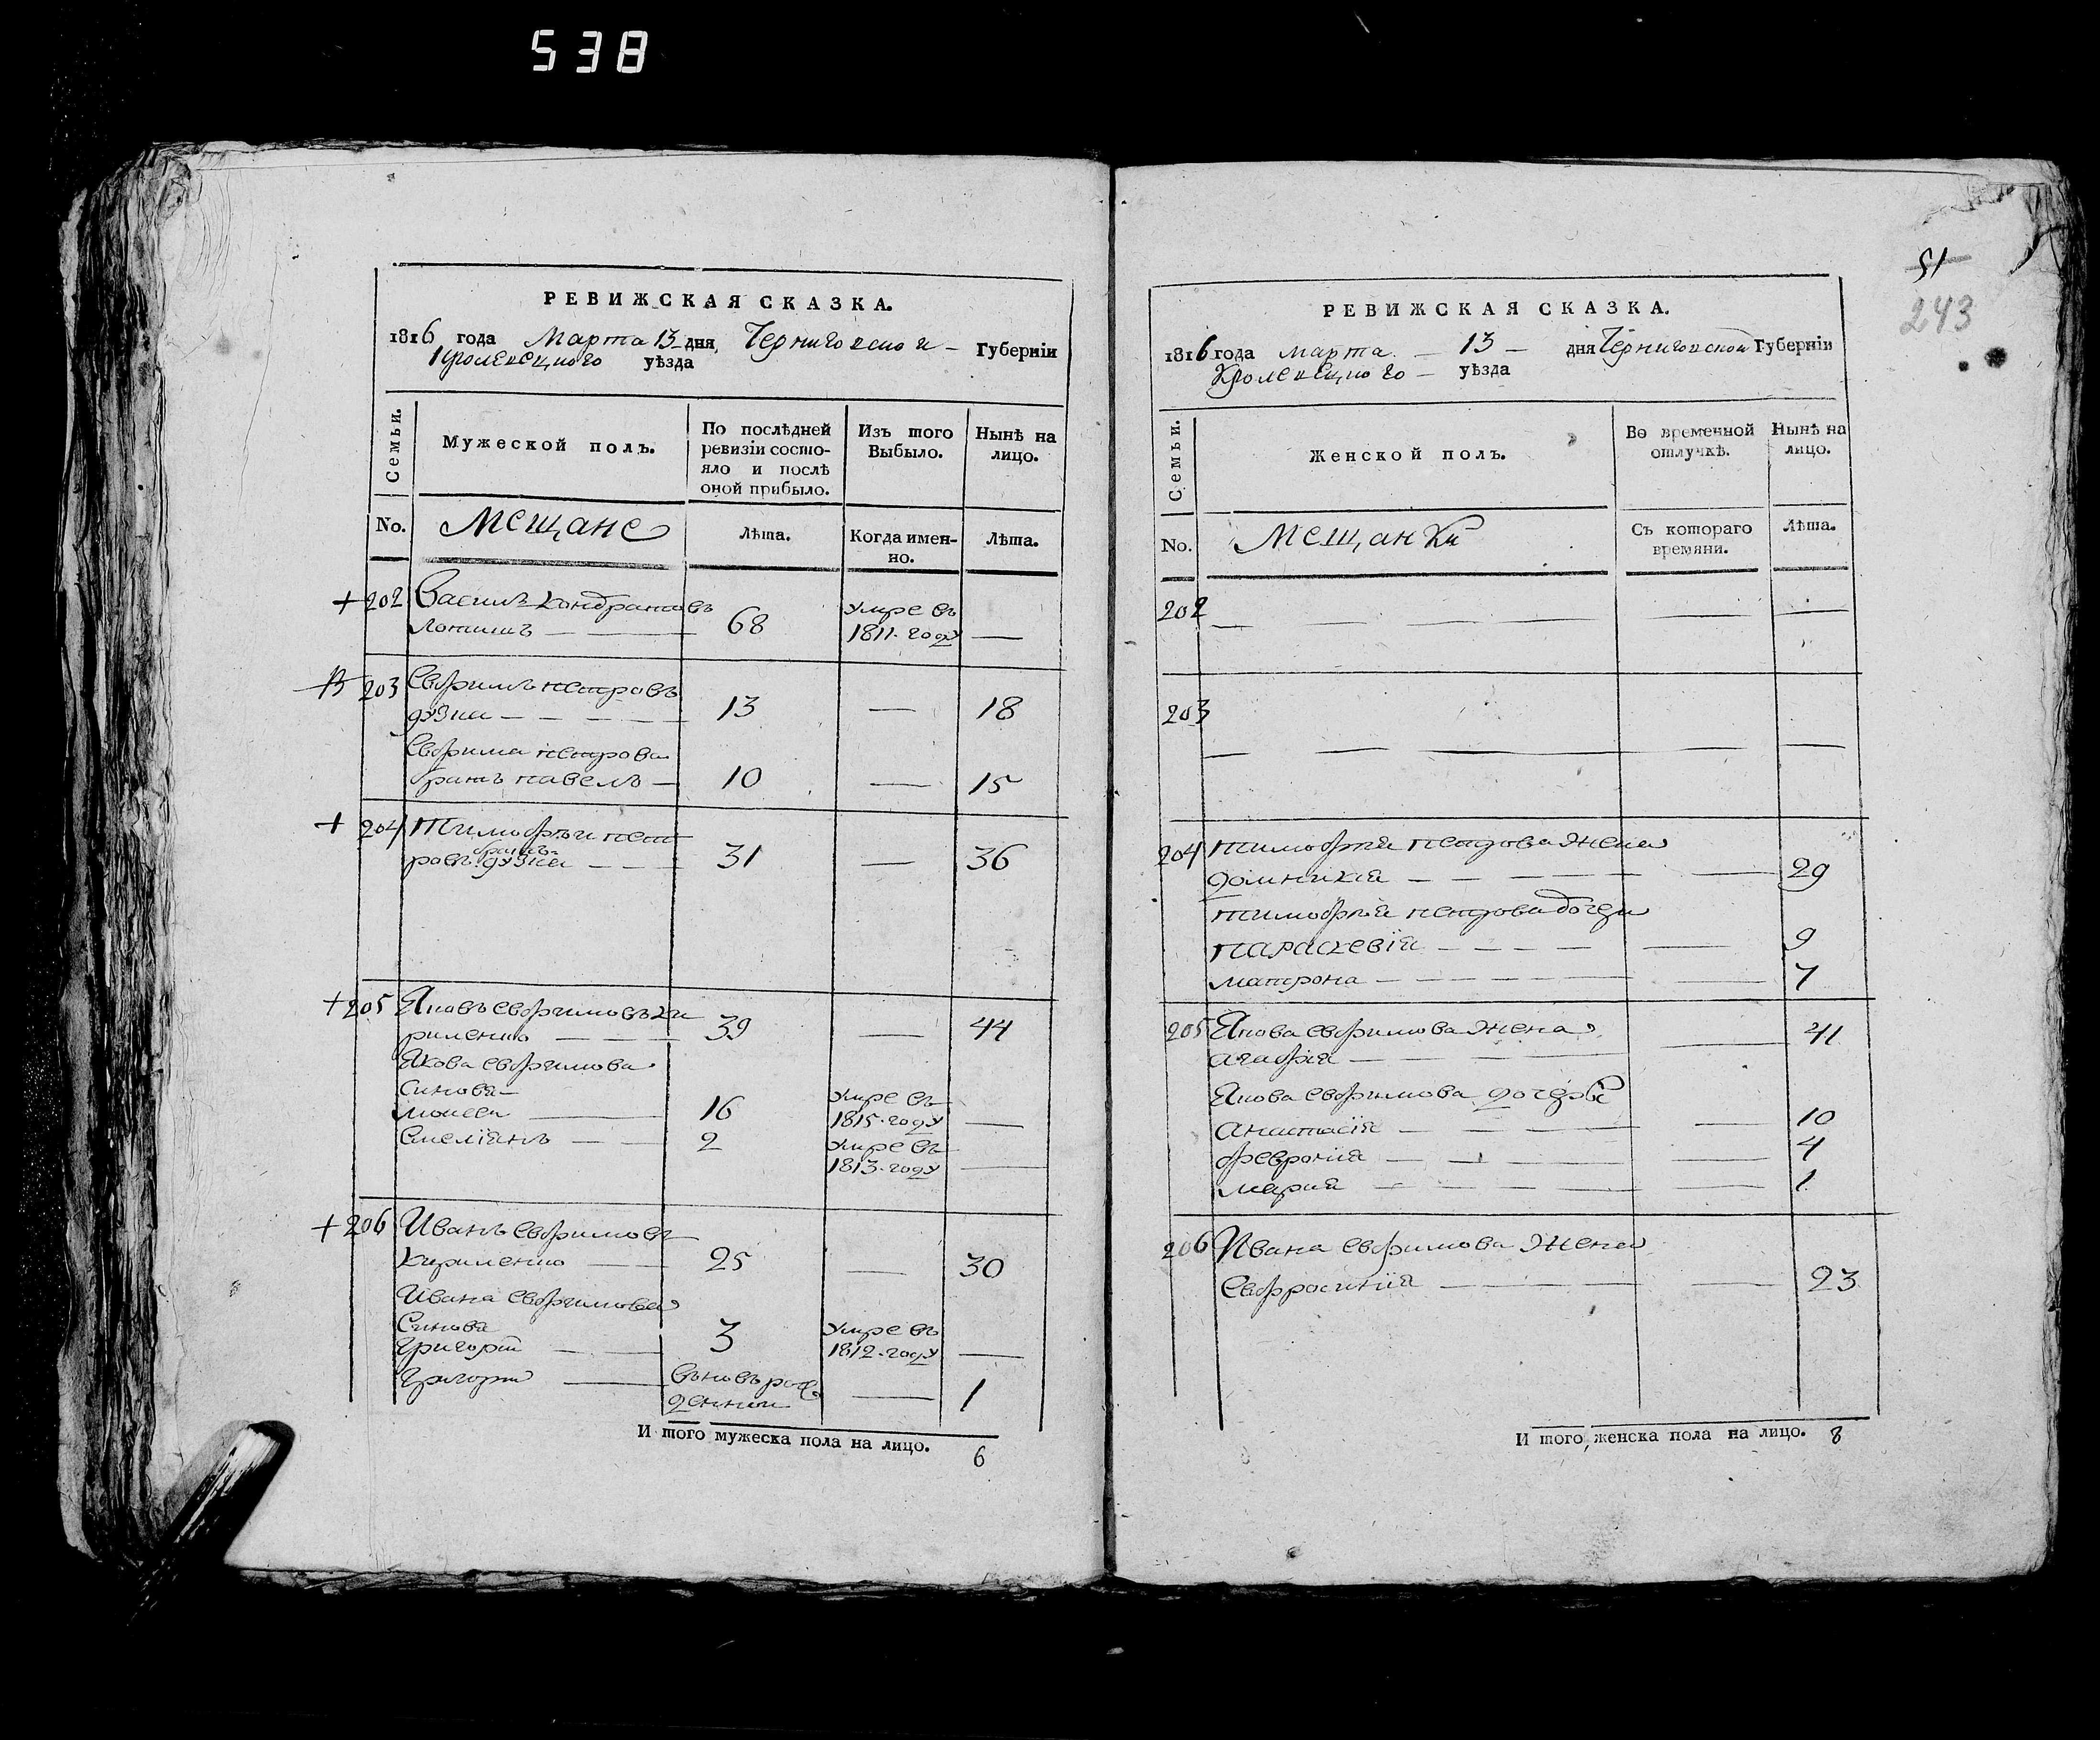 538
РЕВИЖСКАЯ СКАЗКА.
1816 года Марта 13 дня Черниговской Губернiи
Кролевецкого уѣзда
Семьи.
Мужеской полъ.
По послѣдней ревизiи состо-
яло и послѣ оной прибыло.
Изъ того Выбыло.
Нынѣ на лицо.
No.
Мещане
Лѣта.
Когда имен-
но.
Лѣта.
+ 202 Василь Кондратовъ 68 Умре въ
1811 году
203 Ефримъ петровъ
дузка 13 18
Ефрима петрова
братъ павелъ 10 15
+ 204 Тимофѣи пет
ровъ братъ дузка 31 36
+ 205 Яковъ ефримовъ ки
риленко 39 44
Якова ефримова
Синова
Моисеи 16 Умре въ
1815 году
Емелiянъ 2 Умре въ
1813 году
+ 206 Иванъ ефримовъ
Кириленко 25 30
Ивана ефримова
Синова
Григорiй 3 Умре въ
1812 году
Григорiй вьновърож
деннии 1
И того мужеска пола на лицо. 6
51
243
РЕВИЖСКАЯ СКАЗКА.
1816 года марта 13 дня Черниговской Губернiи
Кролевецкого уѣзда
Семьи.
Женской полъ.
Во временной отлучкѣ.
Нынѣ на лицо.
No.
Мещанки
Съ котораго времяни.
Лѣта.
202
203
204 тимофѣя петрова жена
домникiя 29
тимофѣя петрова дочери
параскевiя 9
матрона 7
205 Якова ефримова жена
агафiя 41
Якова ефримова дочери
анастасiя 10
февронiя 4
мария 1
206 Ивана ефримова жена
Ефросинiя 23
И того женска пола на лицо. 8